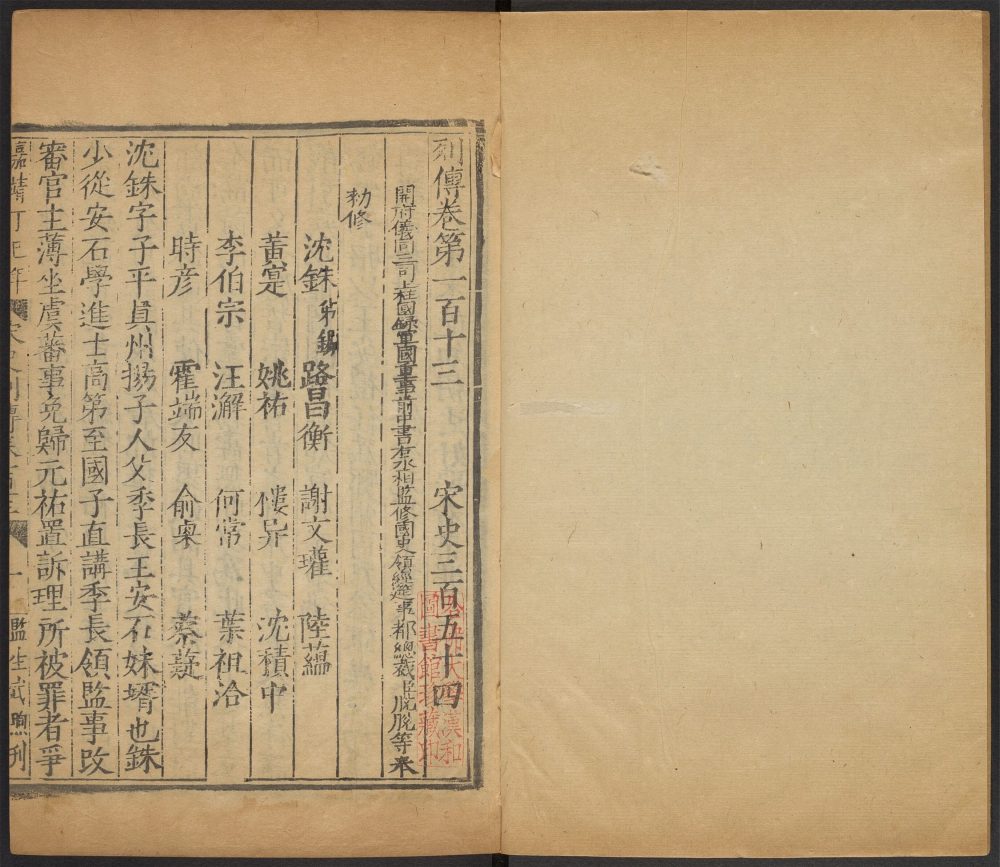 列傳卷第一百十三 宋史三百五十四
開府儀同三司上柱國錄軍國重事前中書右丞相監修國史領經筵事都總裁臣脫脫等奉
勑修
沈銖 弟錫 路昌衡 謝文瓘 陸蘊
黃寔 姚祐 樓异 沈積中
李伯宗 汪澥 何常 葉祖洽
時彥 霍端友 俞㮚 蔡薿
沈銖字子平真州揚子人父季長王安石妹壻也銖
少從安石學進士高第至國子直講季長領監事改
審官主薄坐虞蕃事免歸元祐置訴理所被罪者爭
嘉靖丁巳年 宋史列傳卷百十三 一 監生武煦刊
哈佛大學漢和
圖書館珍藏印